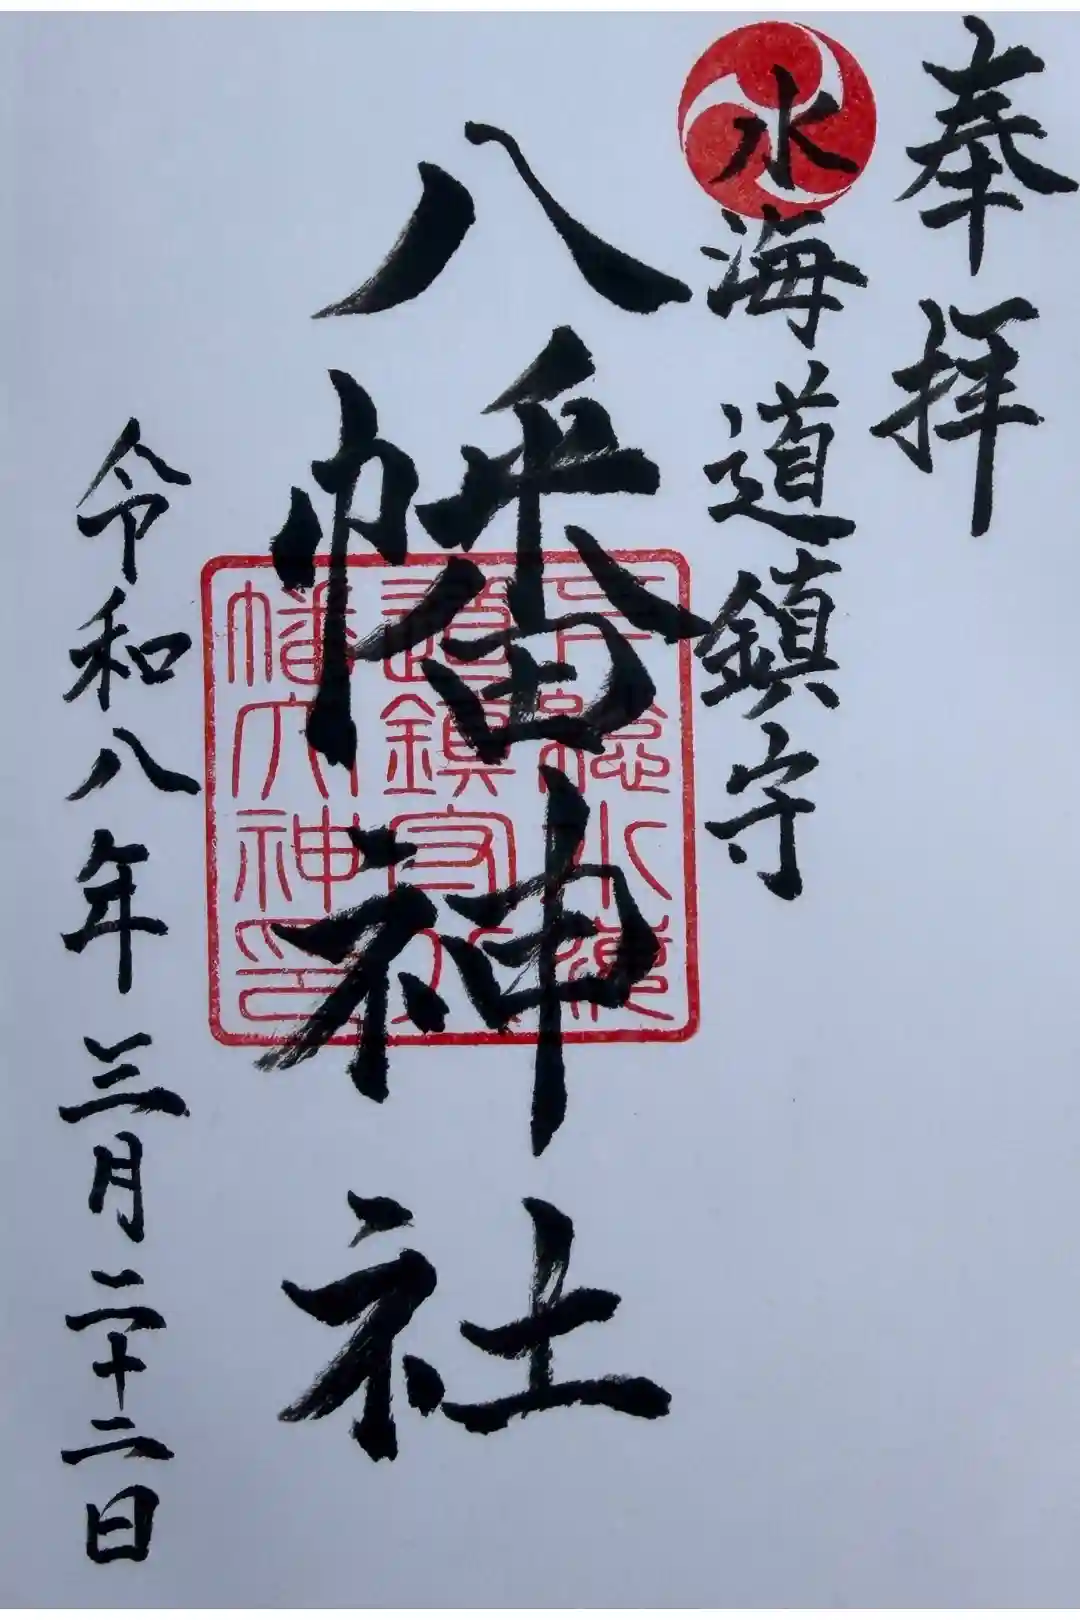 奉拝
水海道鎮守
八幡神社
令和八年三月二十二日